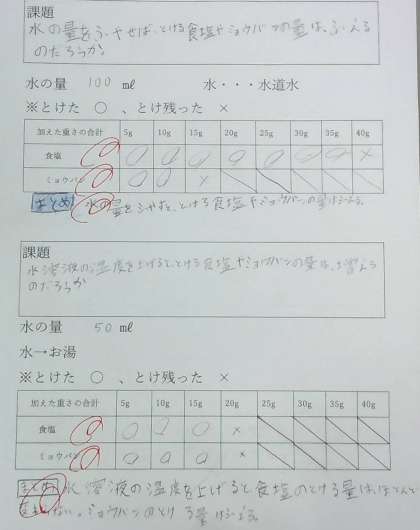 課題
水の量をふやせば、とける食塩やミョウバンの量は、ふえる
のだろうか。
水の量 100 ml 水・・・水道水
※とけた ○ 、とけ残った ×
加えた重さの合計 5g 10g 15g 20g 25g 30g 35g 40g
食塩 ○ ○ ○ ○ ○ ○ ○ ×
ミョウバン ○ ○ ×
まとめ 水の量をふやすと、とける食塩やミョウバンの量はふえる。
課題
水溶液の温度を上げると、とける食塩やミョウバンの量は、増える
のだろうか
水の量 50 ml
水→お湯
※とけた ○ 、とけ残った ×
加えた重さの合計 5g 10g 15g 20g 25g 30g 35g 40g
食塩 ○ ○ ○ ×
ミョウバン ○ ○ ○ ×
まとめ 水溶液の温度を上げると食塩のとける量はほとんど
ない。ミョウバンのとける量はふえる